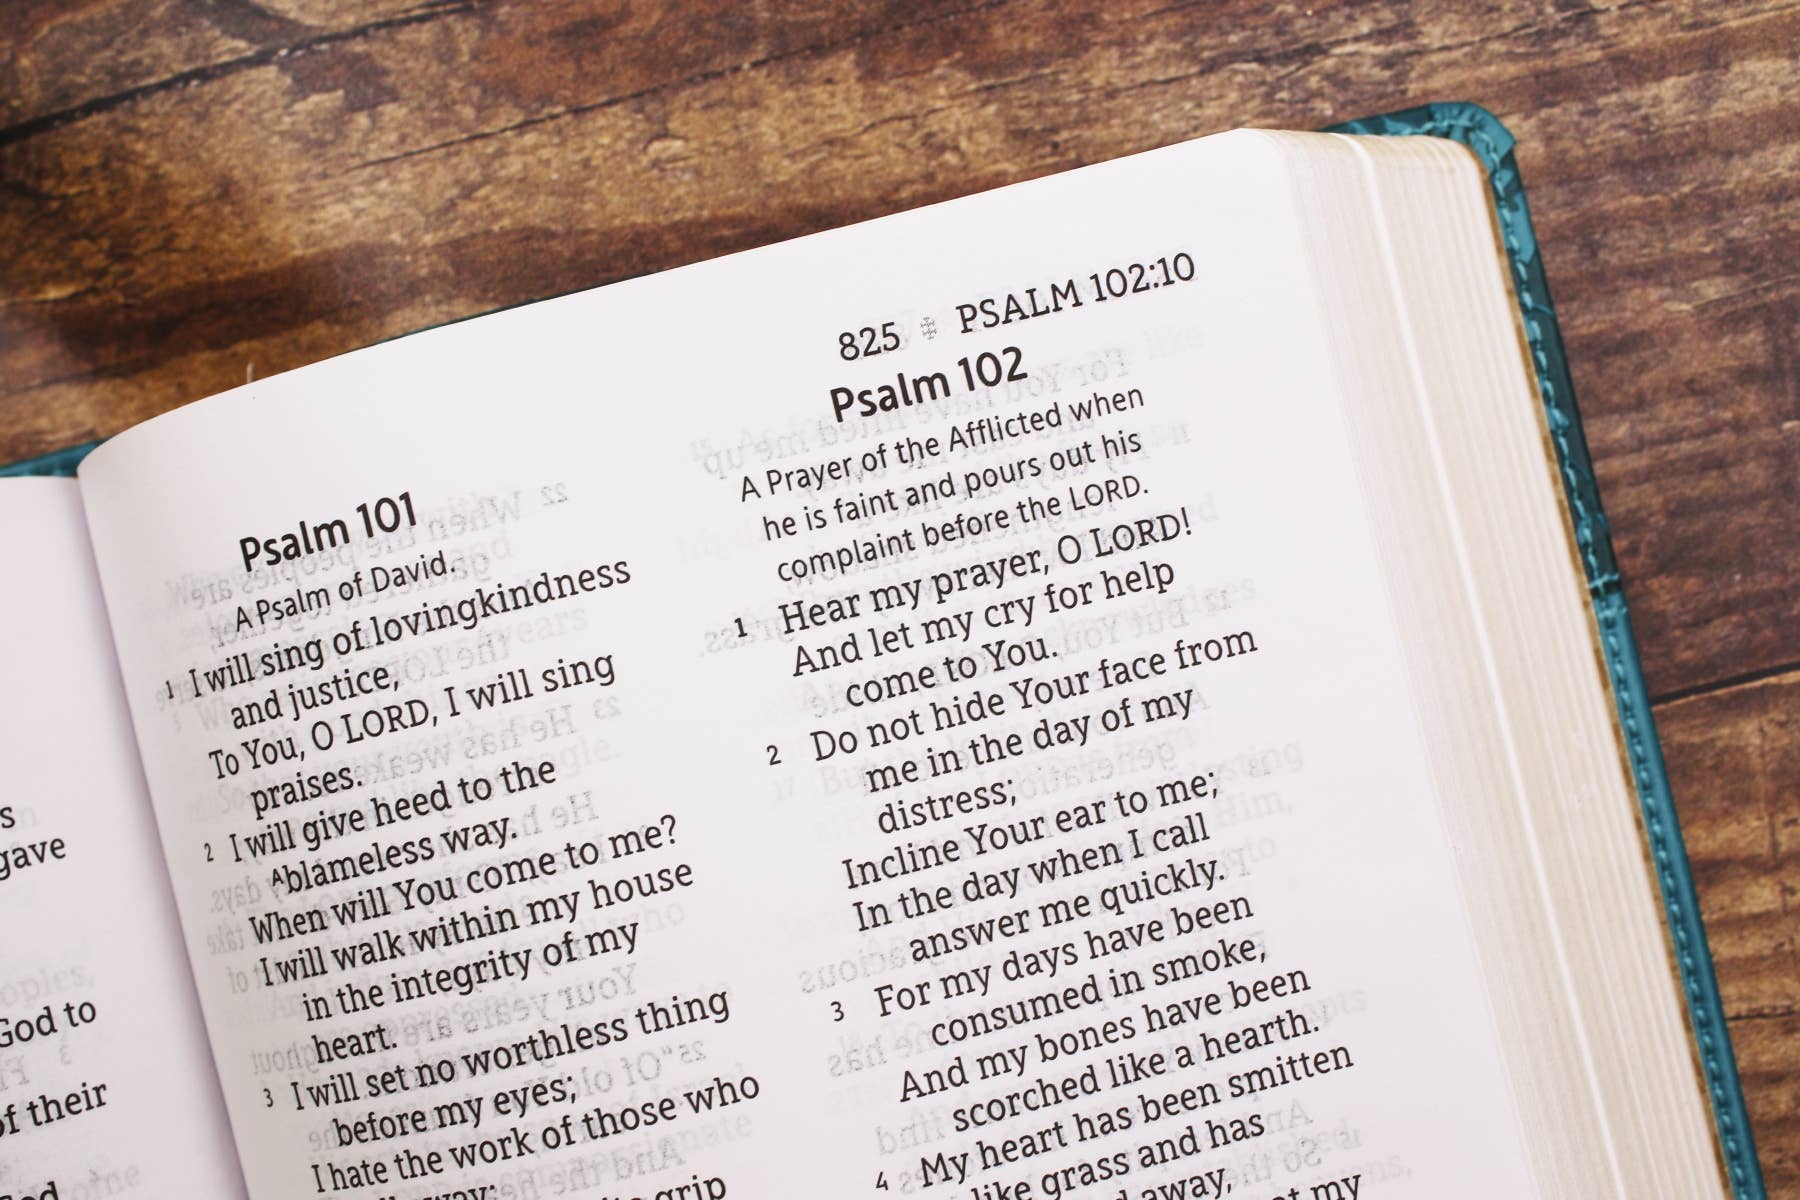 s
gave
God to
of their
825 PSALM 102:10
Psalm 101
A Psalm of David.
1 I will sing of lovingkindness
and justice,
To You, O LORD, I will sing
praises.
2 I will give heed to the
Ablameless way.
When will You come to me?
I will walk within my house
in the integrity of my
heart.
3 I will set no worthless thing
before my eyes;
I hate the work of those who
grip
Psalm 102
A Prayer of the Afflicted when
he is faint and pours out his
complaint before the LORD.
1 Hear my prayer, O LORD!
And let my cry for help
come to You.
2 Do not hide Your face from
me in the day of my
distress;
Incline Your ear to me;
In the day when I call
answer me quickly.
3 For my days have been
consumed in smoke,
And my bones have been
scorched like a hearth.
4 My heart has been smitten
like grass and has
away,
my